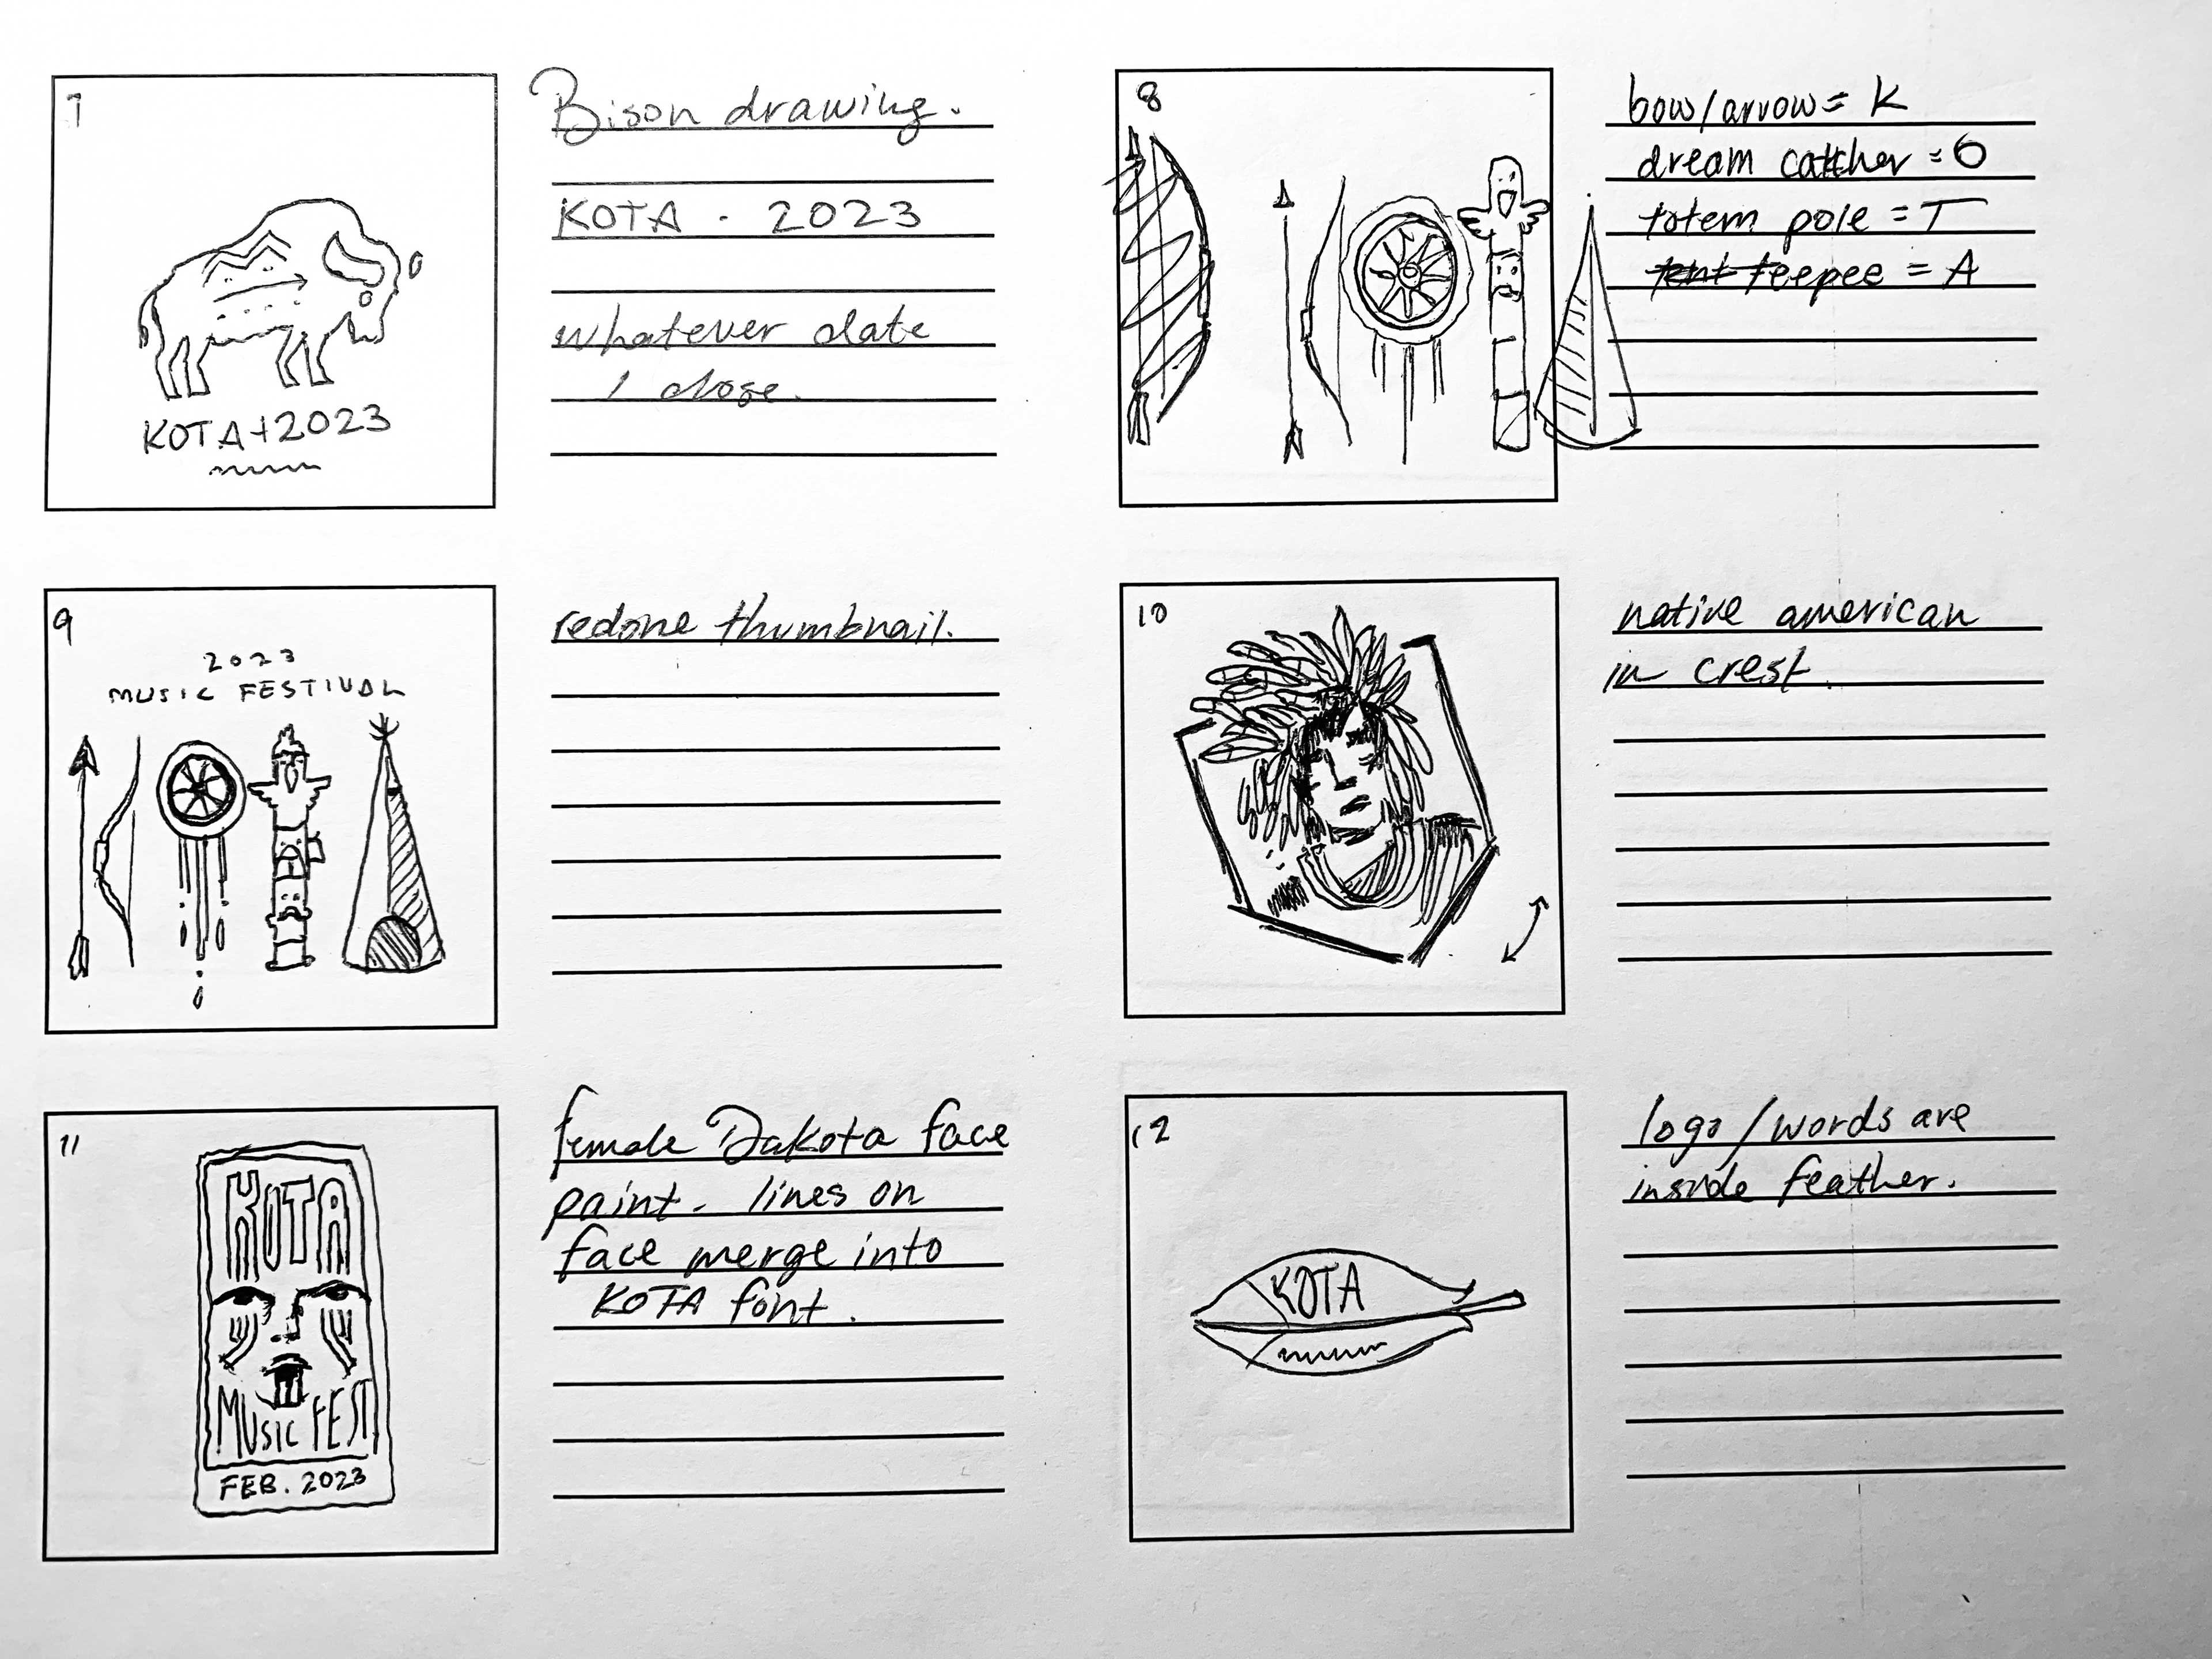 7
KOTA + 2023
Bison drawing.
KOTA - 2023
whatever date
I chose.
8
bow/arrow = K
dream catcher = O
totem pole = T
tent teepee = A
9
2023
MUSIC FESTIVAL
redone thumbnail.
10
native american
in crest.
11
KOTA
MUSIC FEST
FEB. 2023
female Dakota face
paint. lines on
face merge into
KOTA font.
12
KOTA
logo/words are
inside feather.